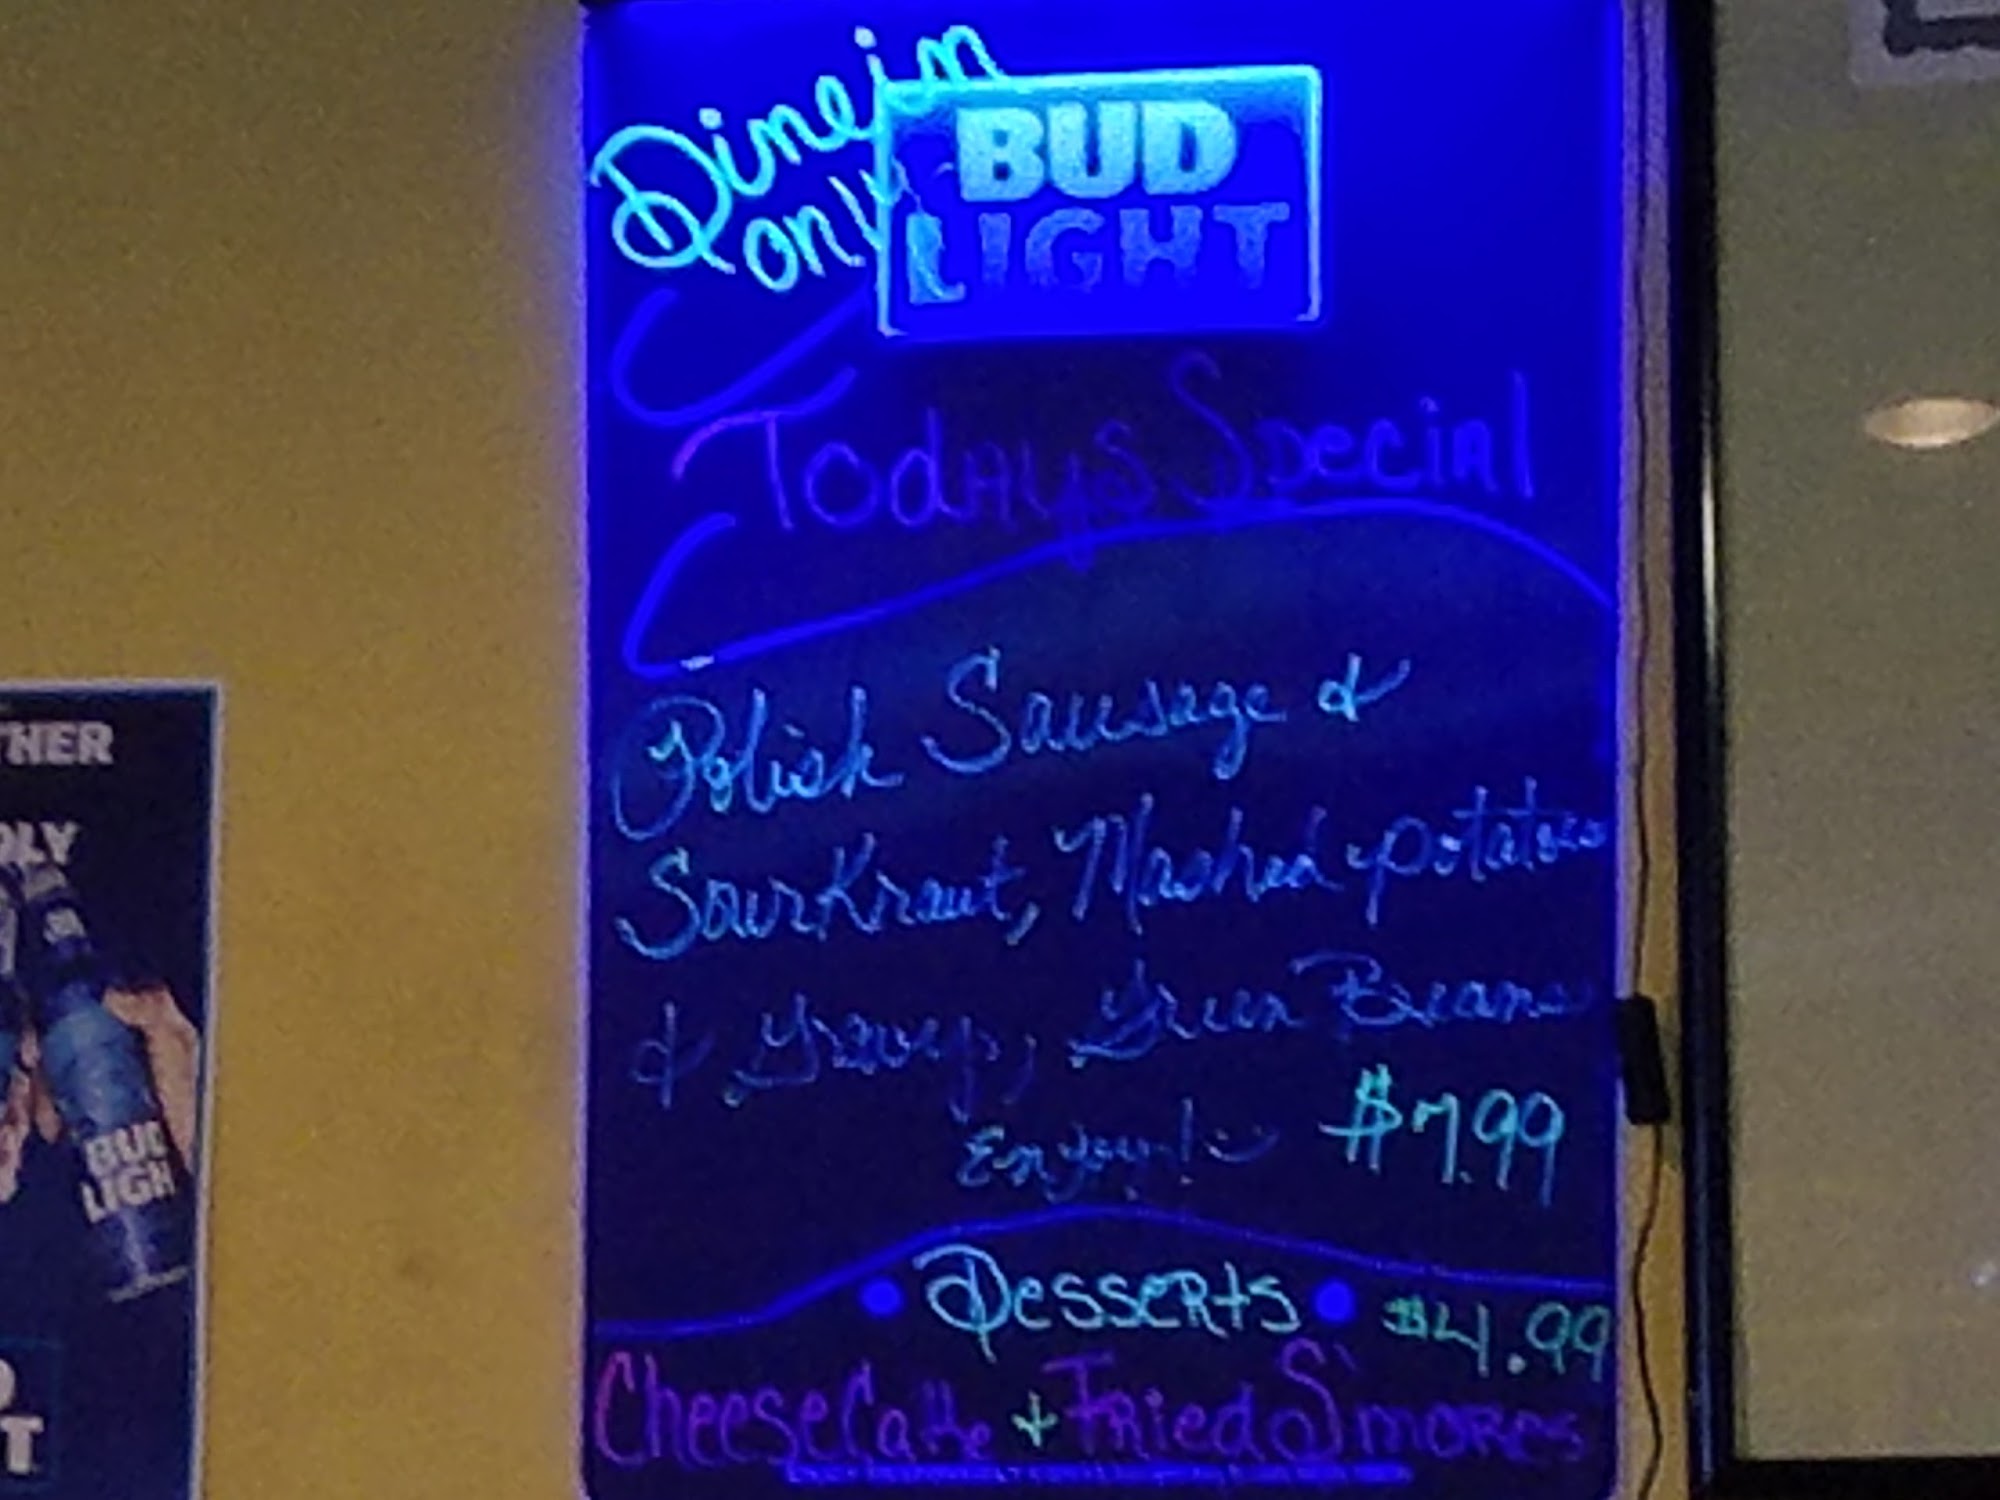 Dine in
only
BUD
LIGHT
Todays Special
Polish Sausage &
SourKraut, Mashed potatoes
& Gravy, Green Beans
Enjoy!
$7.99
Desserts
$4.99
CheeseCake + Fried S'mores
THER
LY
BUD
LIGH
T